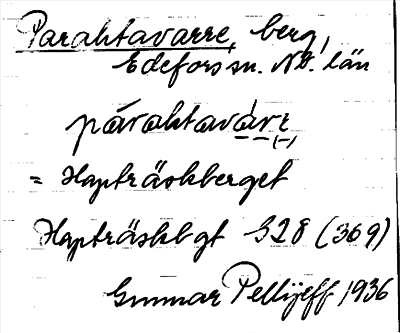 Parahtavarre, berg,
Edefors sn. Nb. län
párahtaváre̮ (-)
= Hapträskberget
Hapträskbgt 328 (369)
Gunnar Pellijeff 1936